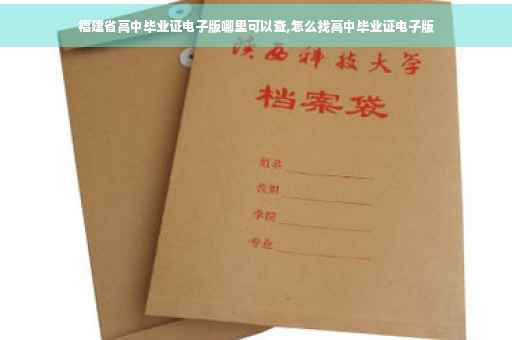 福建省高中毕业证电子版哪里可以查,怎么找高中毕业证电子版
陕西科技大学
档案袋
学院
专业